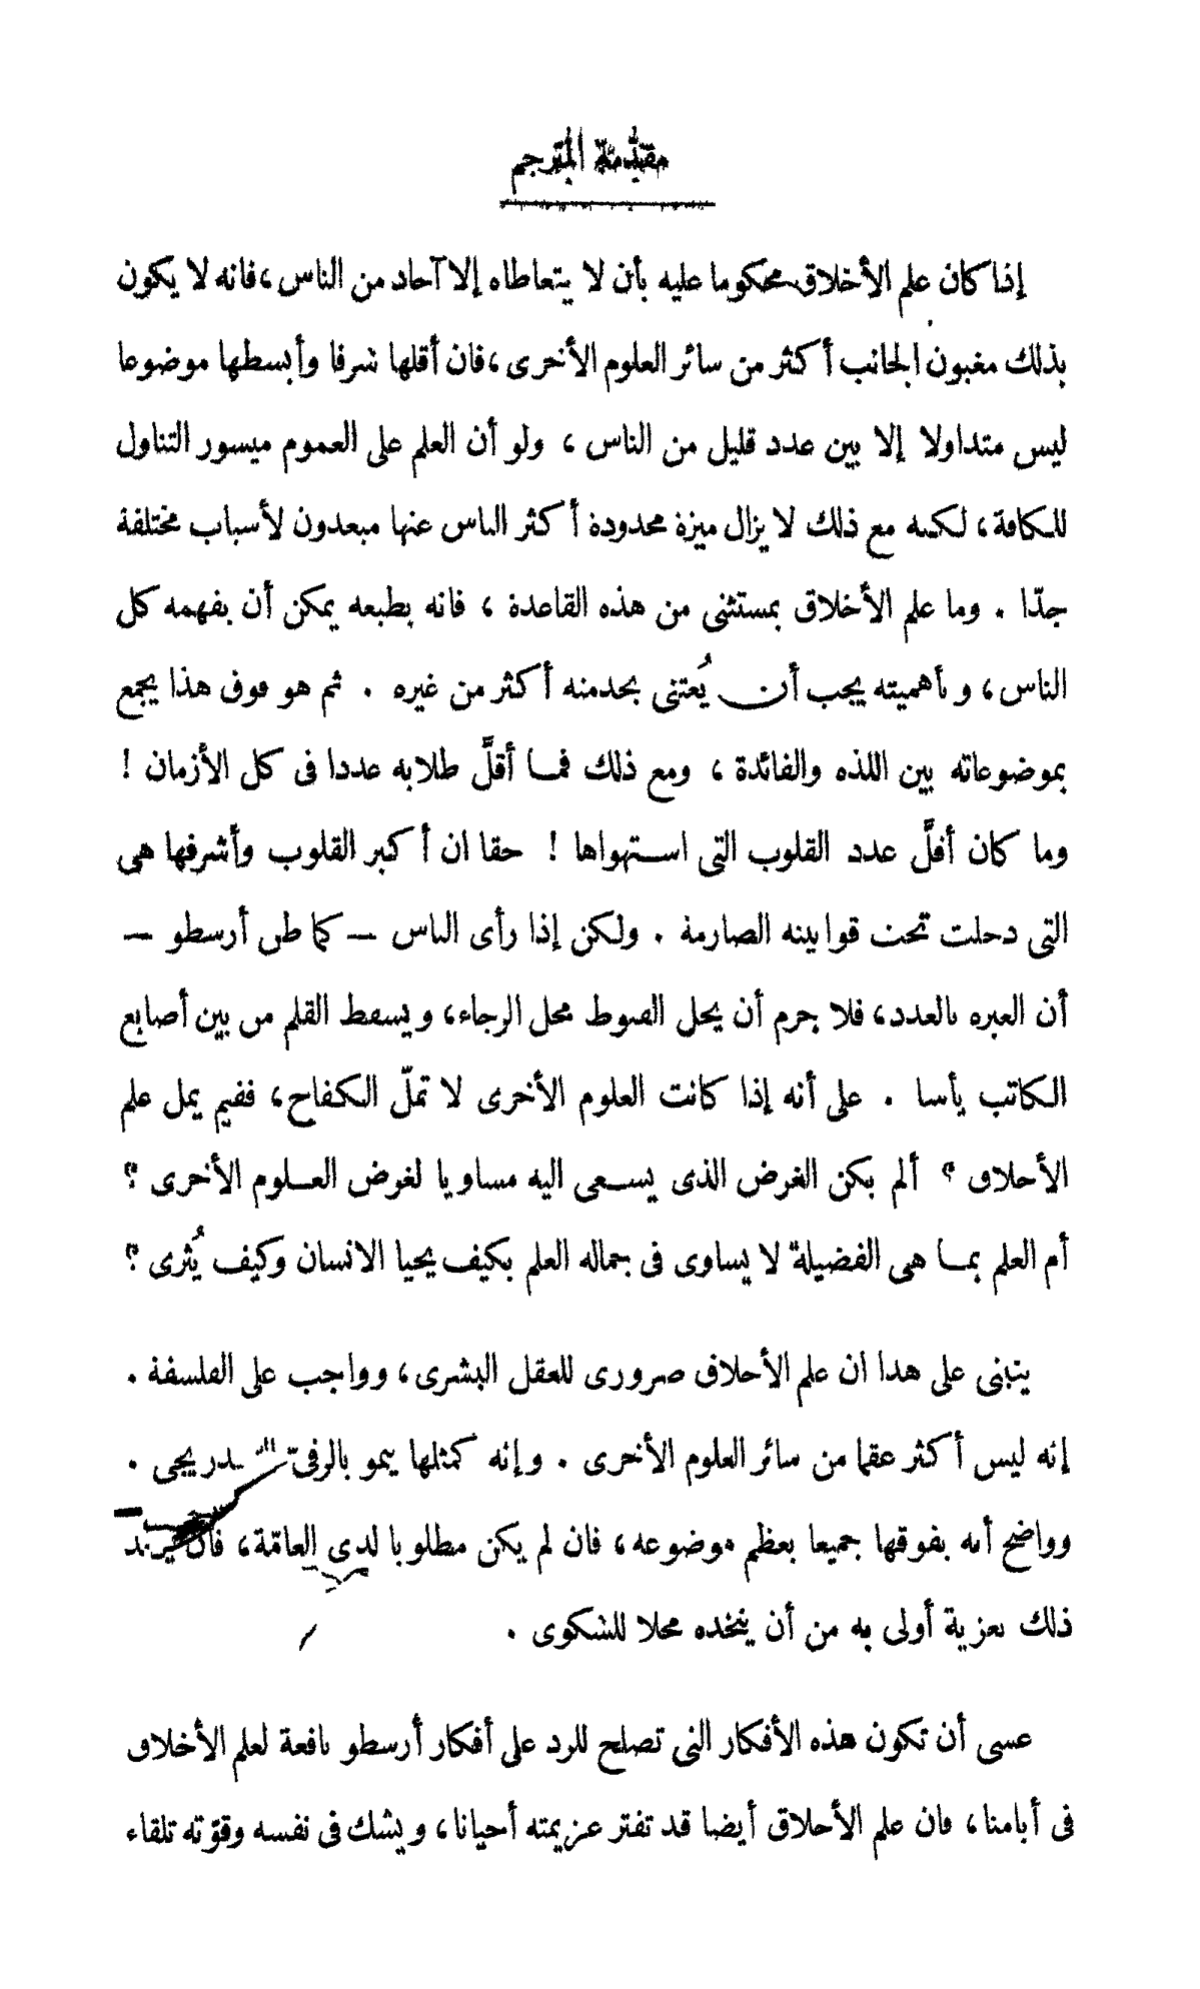 مقدّمة المترجم
إذا كان علم الأخلاق محكوما عليه بأن لا يتعاطاه إلا آحاد من الناس ، فانه لا يكون
بذلك مغبون الجانب أكثر من سائر العلوم الأخرى ، فان أقلها شرفا وأبسطها موضوعا
ليس متداولا إلا بين عدد قليل من الناس ، ولو أن العلم على العموم ميسور التناول
للكافة ، لكنه مع ذلك لا يزال ميزة محدودة أكثر الناس عنها مبعدون لأسباب مختلفة
جدّا . وما علم الأخلاق بمستثنى من هذه القاعدة ، فانه بطبعه يمكن أن يفهمه كل
الناس ، وبأهميته يجب أن يُعتنى بخدمته أكثر من غيره . ثم هو فوق هذا يجمع
بموضوعاته بين اللذه والفائدة ، ومع ذلك فما أقلَّ طلابه عددا فى كل الأزمان !
وما كان أقلَّ عدد القلوب التى استهواها ! حقا ان أكبر القلوب وأشرفها هى
التى دخلت تحت قوانينه الصارمة . ولكن إذا رأى الناس — كما ظن أرسطو —
أن العبره بالعدد ، فلا جرم أن يحل القنوط محل الرجاء ، ويسقط القلم من بين أصابع
الكاتب يأسا . على أنه إذا كانت العلوم الأخرى لا تملّ الكفاح ، ففيم يمل علم
الأخلاق ؟ ألم يكن الغرض الذى يسعى اليه مساويا لغرض العلوم الأخرى ؟
أم العلم بما هى الفضيلة لا يساوى فى جماله العلم بكيف يحيا الانسان وكيف يُثرى ؟
ينبنى على هذا ان علم الأخلاق ضرورى للعقل البشرى ، وواجب على الفلسفة .
إنه ليس أكثر عقما من سائر العلوم الأخرى . وإنه كمثلها ينمو بالرقىّ التدريجى .
وواضح أنه يفوقها جميعا بعظم موضوعه ، فان لم يكن مطلوبا لدى العامّة ، فان
ذلك بعزية أولى به من أن يتخذه محلا للشكوى .
عسى أن تكون هذه الأفكار التى تصلح للرد على أفكار أرسطو نافعة لعلم الأخلاق
فى أيامنا ، فان علم الأخلاق أيضا قد تفتر عزيمته أحيانا ، ويشك فى نفسه وقوّته تلقاء